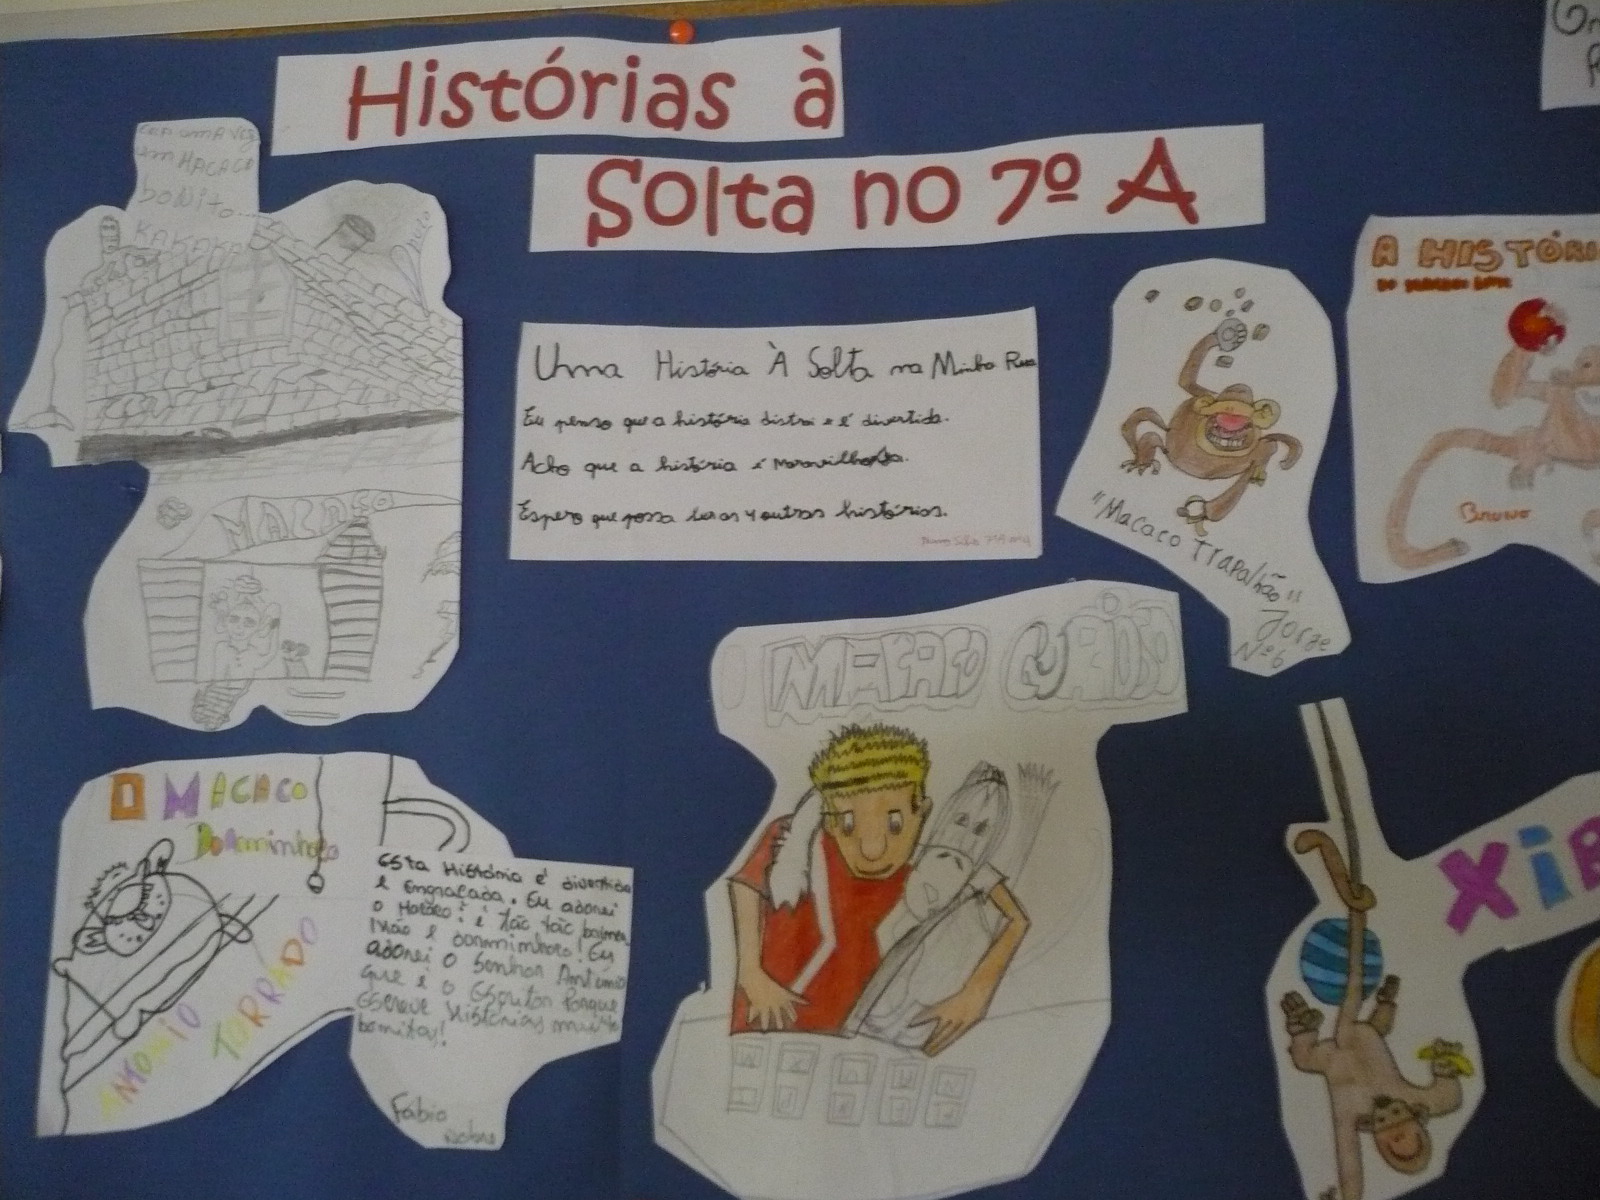 Histórias à
Solta no 7º A
um MACACO
bonito...
KAKAKA
MACACO
Uma História À Solta na Minha Rua
Eu penso que a história distrai e é divertida.
Acho que a história é Maravilhosa.
Espero que possa ler as outras histórias.
"Macaco Trapalhão"
Jorge
Nº 6
A HISTÓRI
Bruno
O MACACO
Dorminhoco
ANTONIO
TORRADO
Esta História é divertida
e Engraçada. Eu adorei
o Macaco: é tão tão
e dorminhoco! Eu
adorei o Senhor António
que é o Escritor Porque
Escreve Histórias muito
bonitas!
Fábio
Nobre
MACACO
XiB